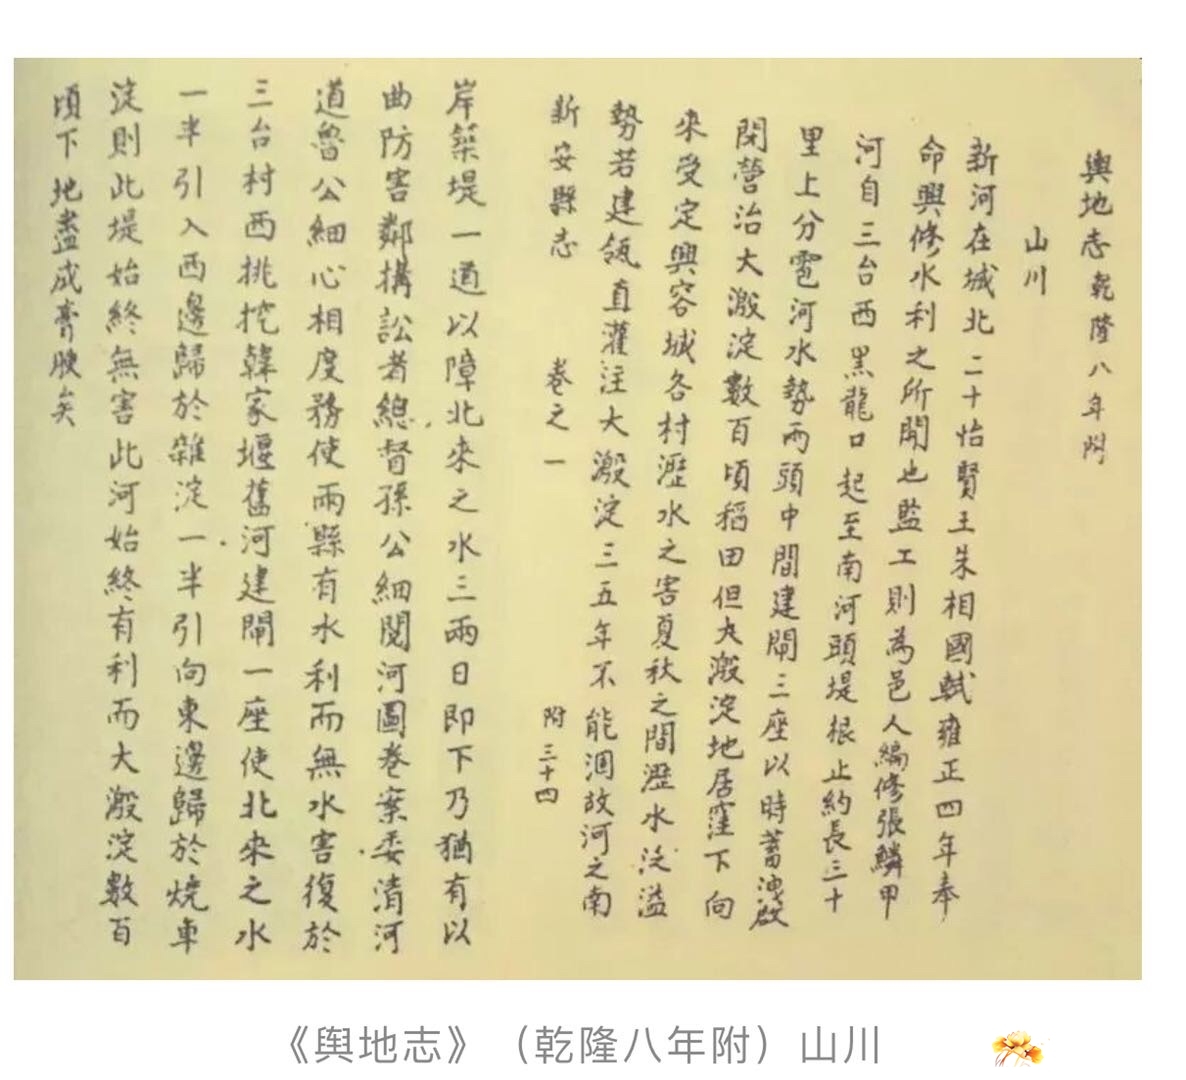 輿地志乾隆八年附
山川
新河在城北二十怡賢王朱相國軾雍正四年奉
命興修水利之所開也監工則為邑人編修張鱗甲
河自三台西黑龍口起至南河頭堤根止約長三十
里上分雹河水勢兩頭中間建閘三座以時蓄洩啟
閉營治大溵淀數百頃稻田但大溵淀地居窪下向
來受定興容城各村瀝水之害夏秋之間瀝水泛溢
勢若建瓴直灌注大溵淀三五年不能涸故河之南
新安縣志 卷之一 附三十四
岸築堤一道以障北來之水三兩日即下乃猶有以
曲防害鄰搆訟者總督孫公細閱河圖卷案委清河
道魯公細心相度務使兩縣有水利而無水害復於
三台村西挑挖韓家堰舊河建閘一座使北來之水
一半引入西邊歸於雜淀一半引向東邊歸於燒車
淀則此堤始終無害此河始終有利而大溵淀數百
頃下地盡成膏腴矣
《輿地志》（乾隆八年附）山川